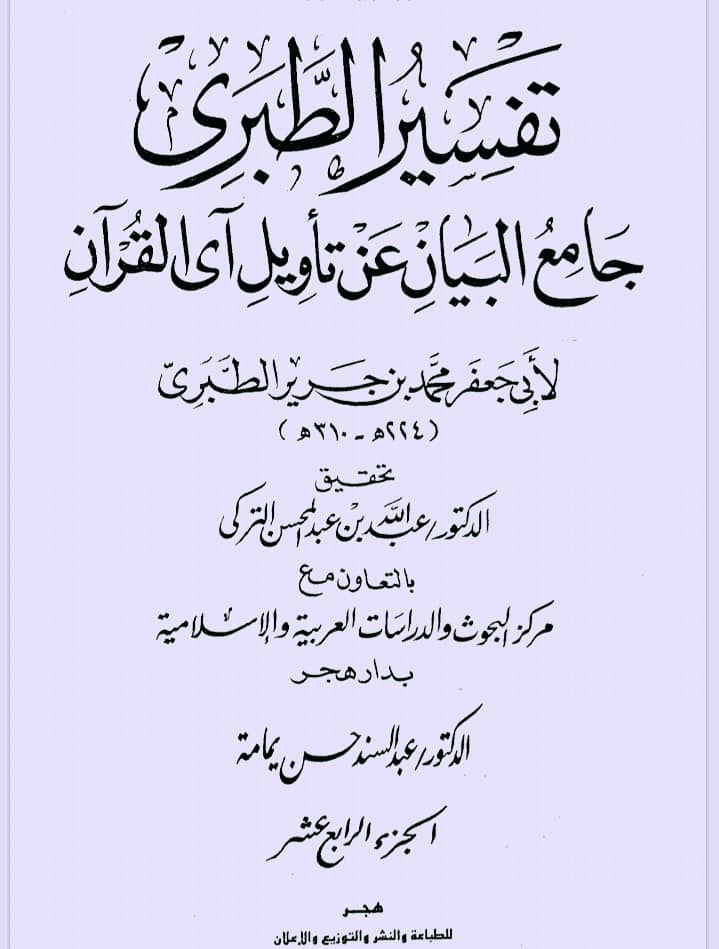 تفسير الطبرى
جامع البيان عن تأويل آى القرآن
لأبى جعفر محمد بن جرير الطبرى
(٢٢٤هـ - ٣١٠هـ)
تحقيق
الدكتور/عبد الله بن عبد المحسن التركى
بالتعاون مع
مركز البحوث والدراسات العربية والإسلامية
بدار هجر
الدكتور/عبد السند حسن يمامة
الجزء الرابع عشر
هجر
للطباعة والنشر والتوزيع والإعلان